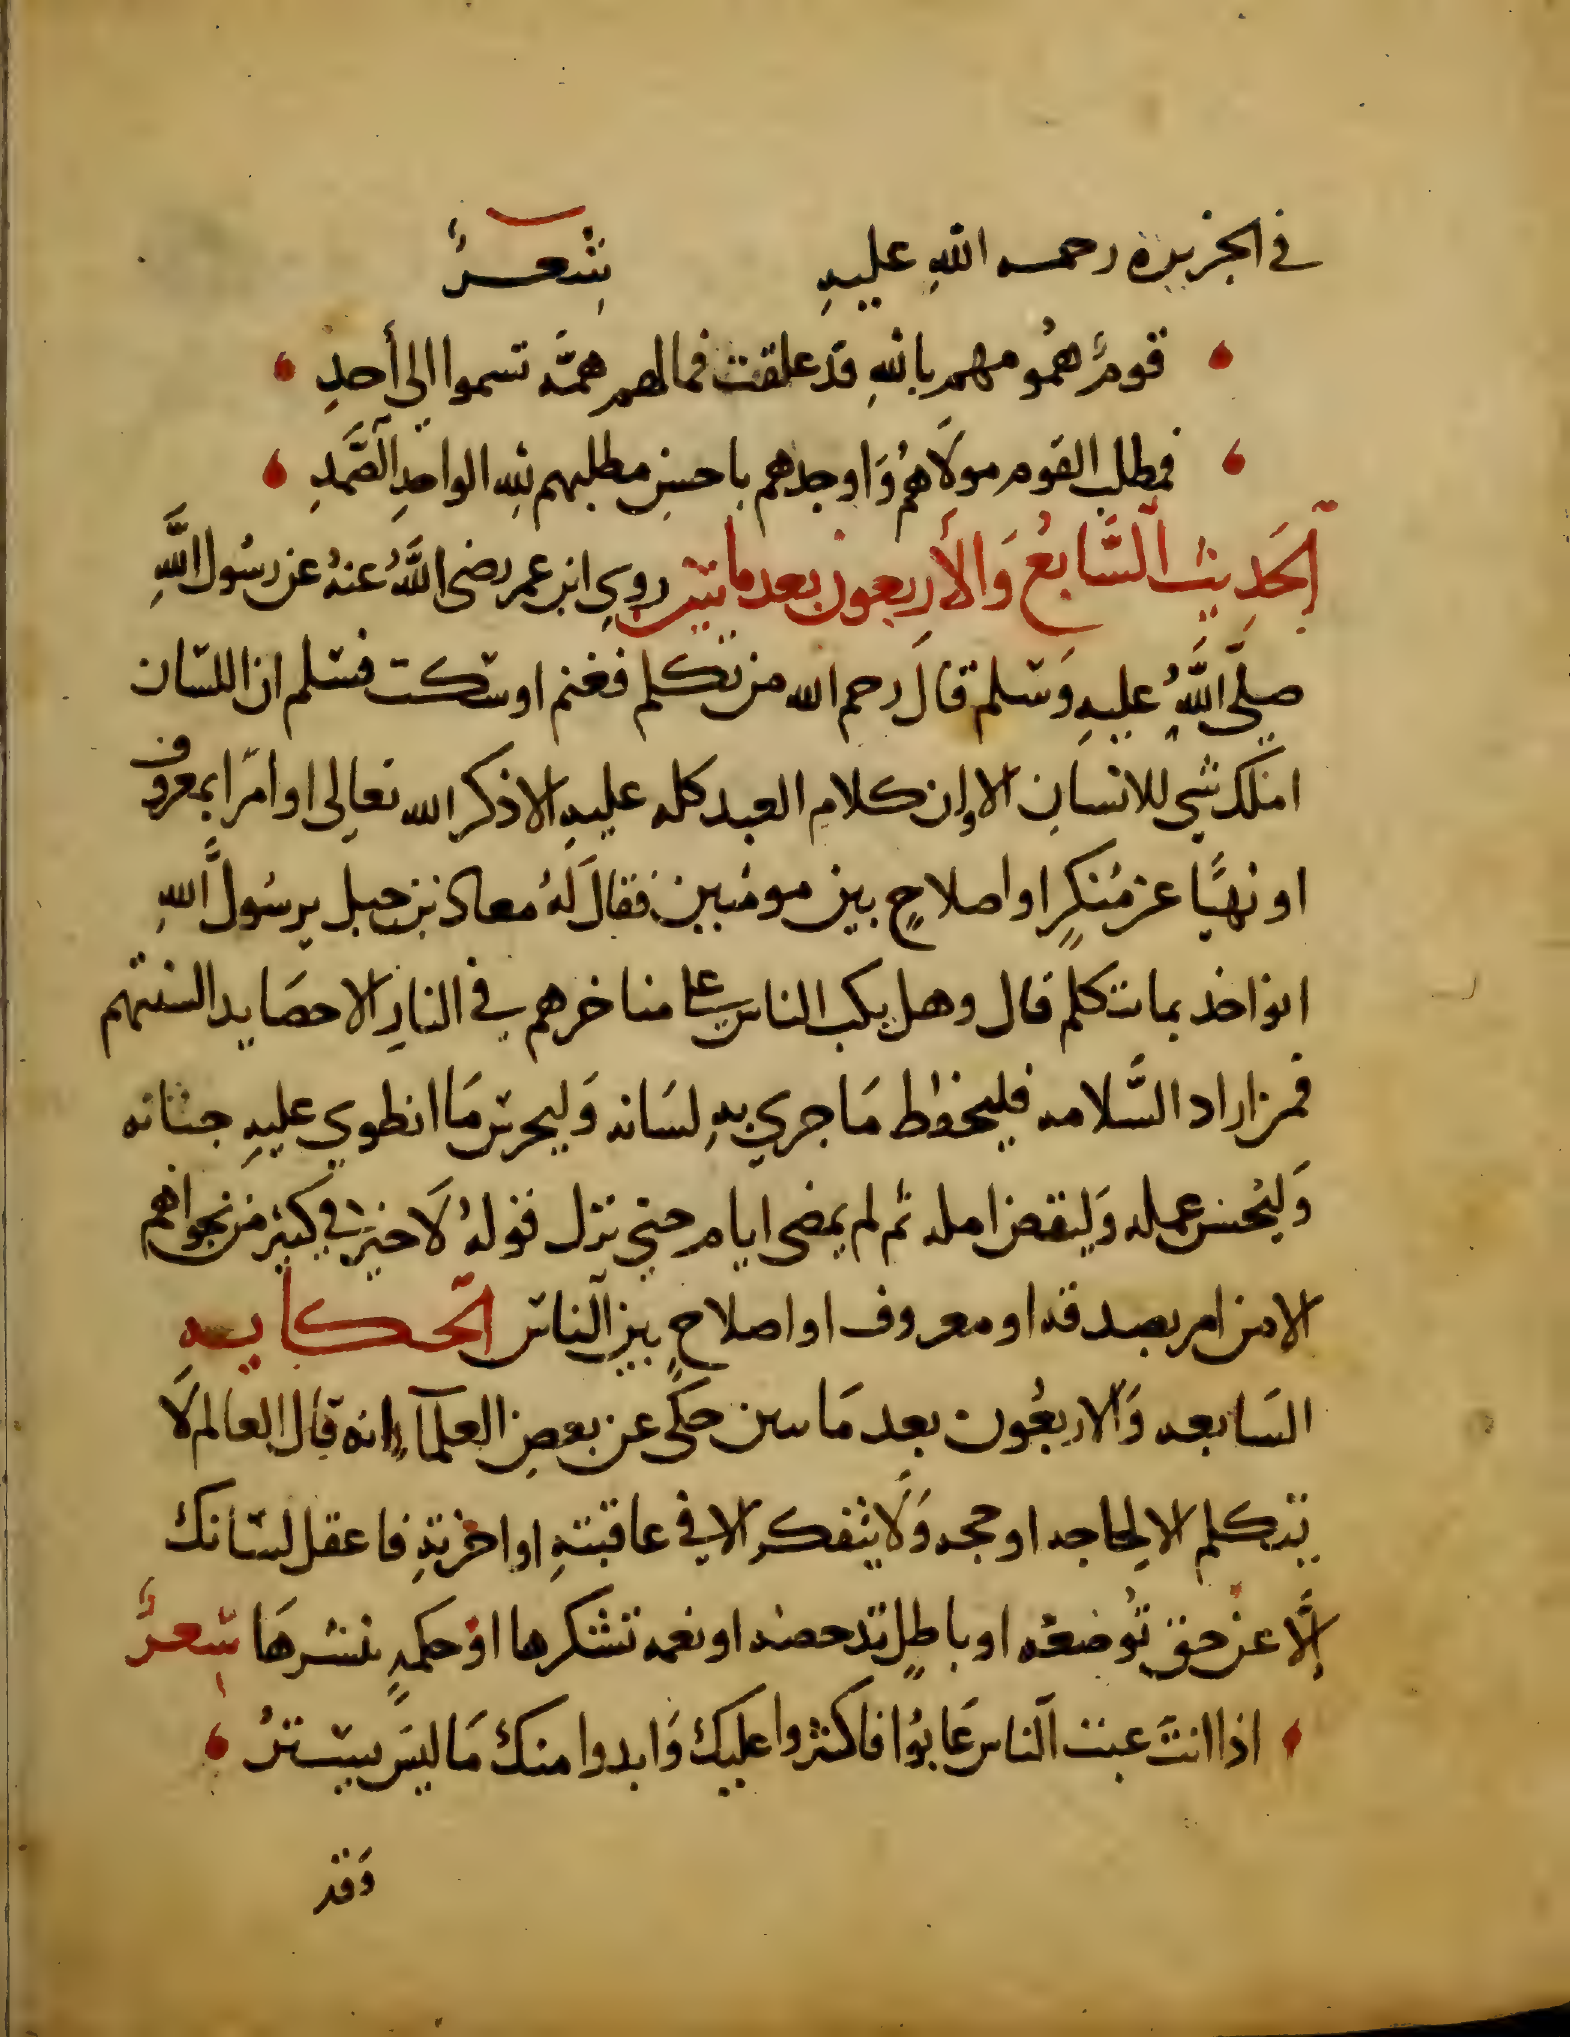 في الجزيرة رحمه اللهِ عليهِ شعرٌ
قومٌ همُومهم باللهِ قد علقت فما لهم همَّه تسموا الي أحدِ
فمطلب القوم مولَاهُم وَاوجدهم باحسنِ مطلبهم للهِ الواحدِ الصَّمَدِ
الحَدِيث السَّابعُ وَالأربعون بعد ماتين روي ابن عمر رضى اللَّهُ عنهُ عن رسُول اللَّهِ
صلَّى اللَّهُ عليهِ وَسلم قالَ رحم الله من تكلم فغنم او سكت فسلم ان اللسان
املك شي للانسان الا وان كلام العبد كله عليهِ الا ذكر الله تعالى او امرًا بمعروف
او نهيًا عن مُنكرٍ او اصلاحٍ بين مومنين فقالَ لهُ معاذ بن جبل يرسُول الله
انواخذ بما نتكلم قال وهل يكب الناس على مناخرهم في النارِ الا حصَايد السنتهم
فمن اراد السَّلامه فليحفظ مَا جري بهِ لسَانه وَليحرس مَا انطوي عليهِ جنانه
وَليُحسن عمله وَليقصر امله ثم لم يمضى ايام حتي نزل قولهُ لَا خيرَ في كثير من نجواهم
الا من امر بصدقه او معروف او اصلاحٍ بين الناس الحكايه
السَابعه وَالاربعُون بعد مَاتين حكَى عن بعض العلمآء انه قال العالم لَا
يتكلم الا لحاجه او حجه وَلَا يتفكر الا في عاقبتهِ او اخرتهِ فاعقل لسَانك
إلَّا عن حق تُوضعه او باطلٍ تدحضه او نعمه تشكرها او حكمهٍ تنشرهَا شعرٌ
اذا انتَ عبت الناس عَابوُا فاكثروا عليك وَابدوا منك مَا ليسَ يستترُ
وَقد